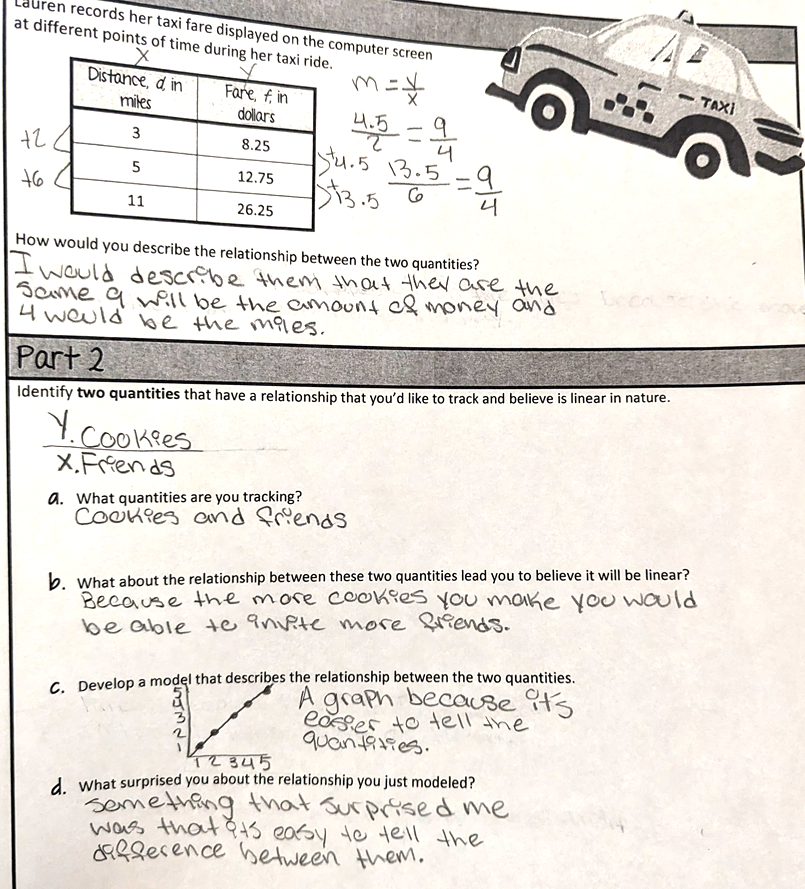 Lauren records her taxi fare displayed on the computer screen
at different points of time during her taxi ride.
X Y
Distance, d, in miles Fare, f, in dollars
3 8.25
5 12.75
11 26.25
+2
+6
+4.5
+13.5
m = y/x
4.5/2 = 9/4
13.5/6 = 9/4
TAXI
How would you describe the relationship between the two quantities?
I would describe them that they are the
same 9 will be the amount of money and
4 would be the miles.
Part 2
Identify two quantities that have a relationship that you'd like to track and believe is linear in nature.
Y. Cookies
X. Friends
a. What quantities are you tracking?
Cookies and friends
b. What about the relationship between these two quantities lead you to believe it will be linear?
Because the more cookies you make you would
be able to invite more friends.
c. Develop a model that describes the relationship between the two quantities.
5
4
3
2
1
1 2 3 4 5
A graph because it's
easier to tell the
quantities.
d. What surprised you about the relationship you just modeled?
something that surprised me
was that it's easy to tell the
difference between them.